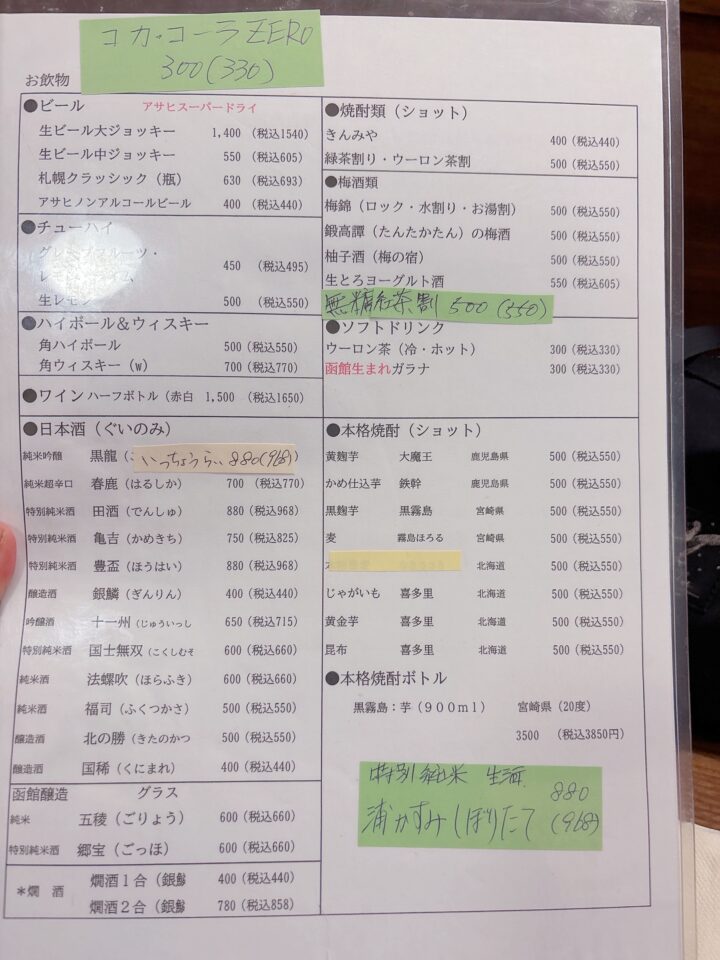 コカ・コーラ ZERO
300(330)
お飲物
●ビール アサヒスーパードライ
生ビール大ジョッキー 1,400 (税込1540)
生ビール中ジョッキー 550 (税込605)
札幌クラッシック（瓶） 630 (税込693)
アサヒノンアルコールビール 400 (税込440)
●チューハイ
グレープフルーツ・
450 (税込495)
生レモン 500 (税込550)
●ハイボール＆ウィスキー
角ハイボール 500(税込550)
角ウィスキー（w） 700(税込770)
●ワイン ハーフボトル（赤白 1,500 (税込1650)
●日本酒（ぐいのみ）
純米吟醸 黒龍（ いっちょうらい 880(968)
純米超辛口 春鹿（はるしか） 700 (税込770)
特別純米酒 田酒（でんしゅ） 880(税込968)
特別純米酒 亀吉（かめきち） 750(税込825)
特別純米酒 豊盃（ほうはい） 880(税込968)
醸造酒 銀鱗（ぎんりん） 400(税込440)
吟醸酒 十一州（じゅういっし 650(税込715)
特別純米酒 国士無双（こくしむそ 600(税込660)
純米酒 法螺吹（ほらふき） 600(税込660)
純米酒 福司（ふくつかさ） 500(税込550)
醸造酒 北の勝（きたのかつ 500(税込550)
醸造酒 国稀（くにまれ） 400(税込440)
函館醸造 グラス
純米 五稜（ごりょう） 600(税込660)
特別純米酒 郷宝（ごっほ） 600(税込660)
＊燗 酒
燗酒１合（銀鱗 400(税込440)
燗酒２合（銀鱗 780(税込858)
●焼酎類（ショット）
きんみや 400(税込440)
緑茶割り・ウーロン茶割 500(税込550)
●梅酒類
梅錦（ロック・水割り・お湯割） 500(税込550)
鍛高譚（たんたかたん）の梅酒 500(税込550)
柚子酒（梅の宿） 500(税込550)
生とろヨーグルト酒 550(税込605)
無糖紅茶割 500 (550)
●ソフトドリンク
ウーロン茶（冷・ホット） 300(税込330)
函館生まれガラナ 300(税込330)
●本格焼酎（ショット）
黄麹芋 大魔王 鹿児島県 500(税込550)
かめ仕込芋 鉄幹 鹿児島県 500(税込550)
黒麹芋 黒霧島 宮崎県 500(税込550)
麦 霧島ほろる 宮崎県 500(税込550)
北海道 500(税込550)
じゃがいも 喜多里 北海道 500(税込550)
黄金芋 喜多里 北海道 500(税込550)
昆布 喜多里 北海道 500(税込550)
●本格焼酎ボトル
黒霧島：芋（９００ｍｌ） 宮崎県（20度）
3500 (税込3850円)
特別純米 生酒 880
浦かすみしぼりたて (968)